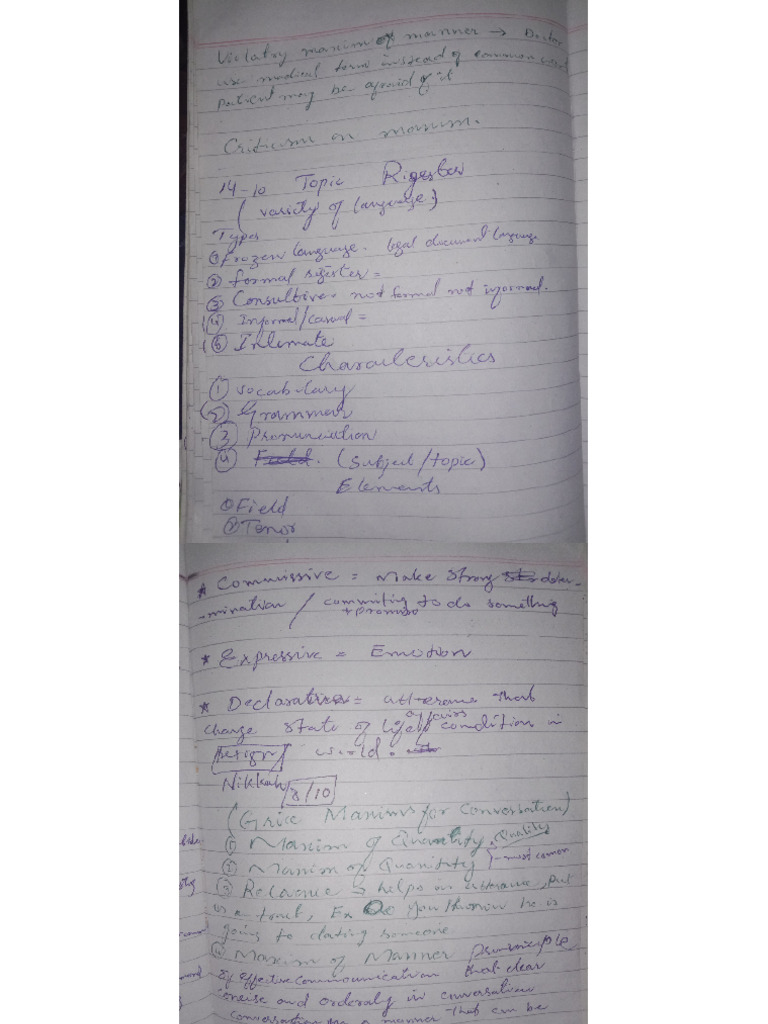 Violatry maxim of manner → Doctor
use medical term instead of common word
patient may be afraid of it
Criticism on maxim.
14-10 Topic Rigester
(variety of language)
Types
① Frozen language. legal document language
② formal register =
③ Consultive= not formal not informal.
④ Informal/casual =
⑤ Intemate
Characteristics
① Vocabulary
② Grammar
③ Pronunciation
④ (Subject/topic)
Elements
① Field
② Tenor
* Commissive = Make strong deter-
-mination / commiting to do something
+ promise
* Expressive = Emotion
* Declarative = utterance that
change state of affairs condition in
world.
Nikkah 8/10
(Grice Maxims for conversation)
① Maxim of Quantity, Quality
② Maxim of Quantity most common
③ Relavance → helps in utterance, put
Ex Do you know he is
going to dating someone
④ Maxim of Manner
of effective communication that clear
concise and orderaly in conversation
conversation in a manner that can be